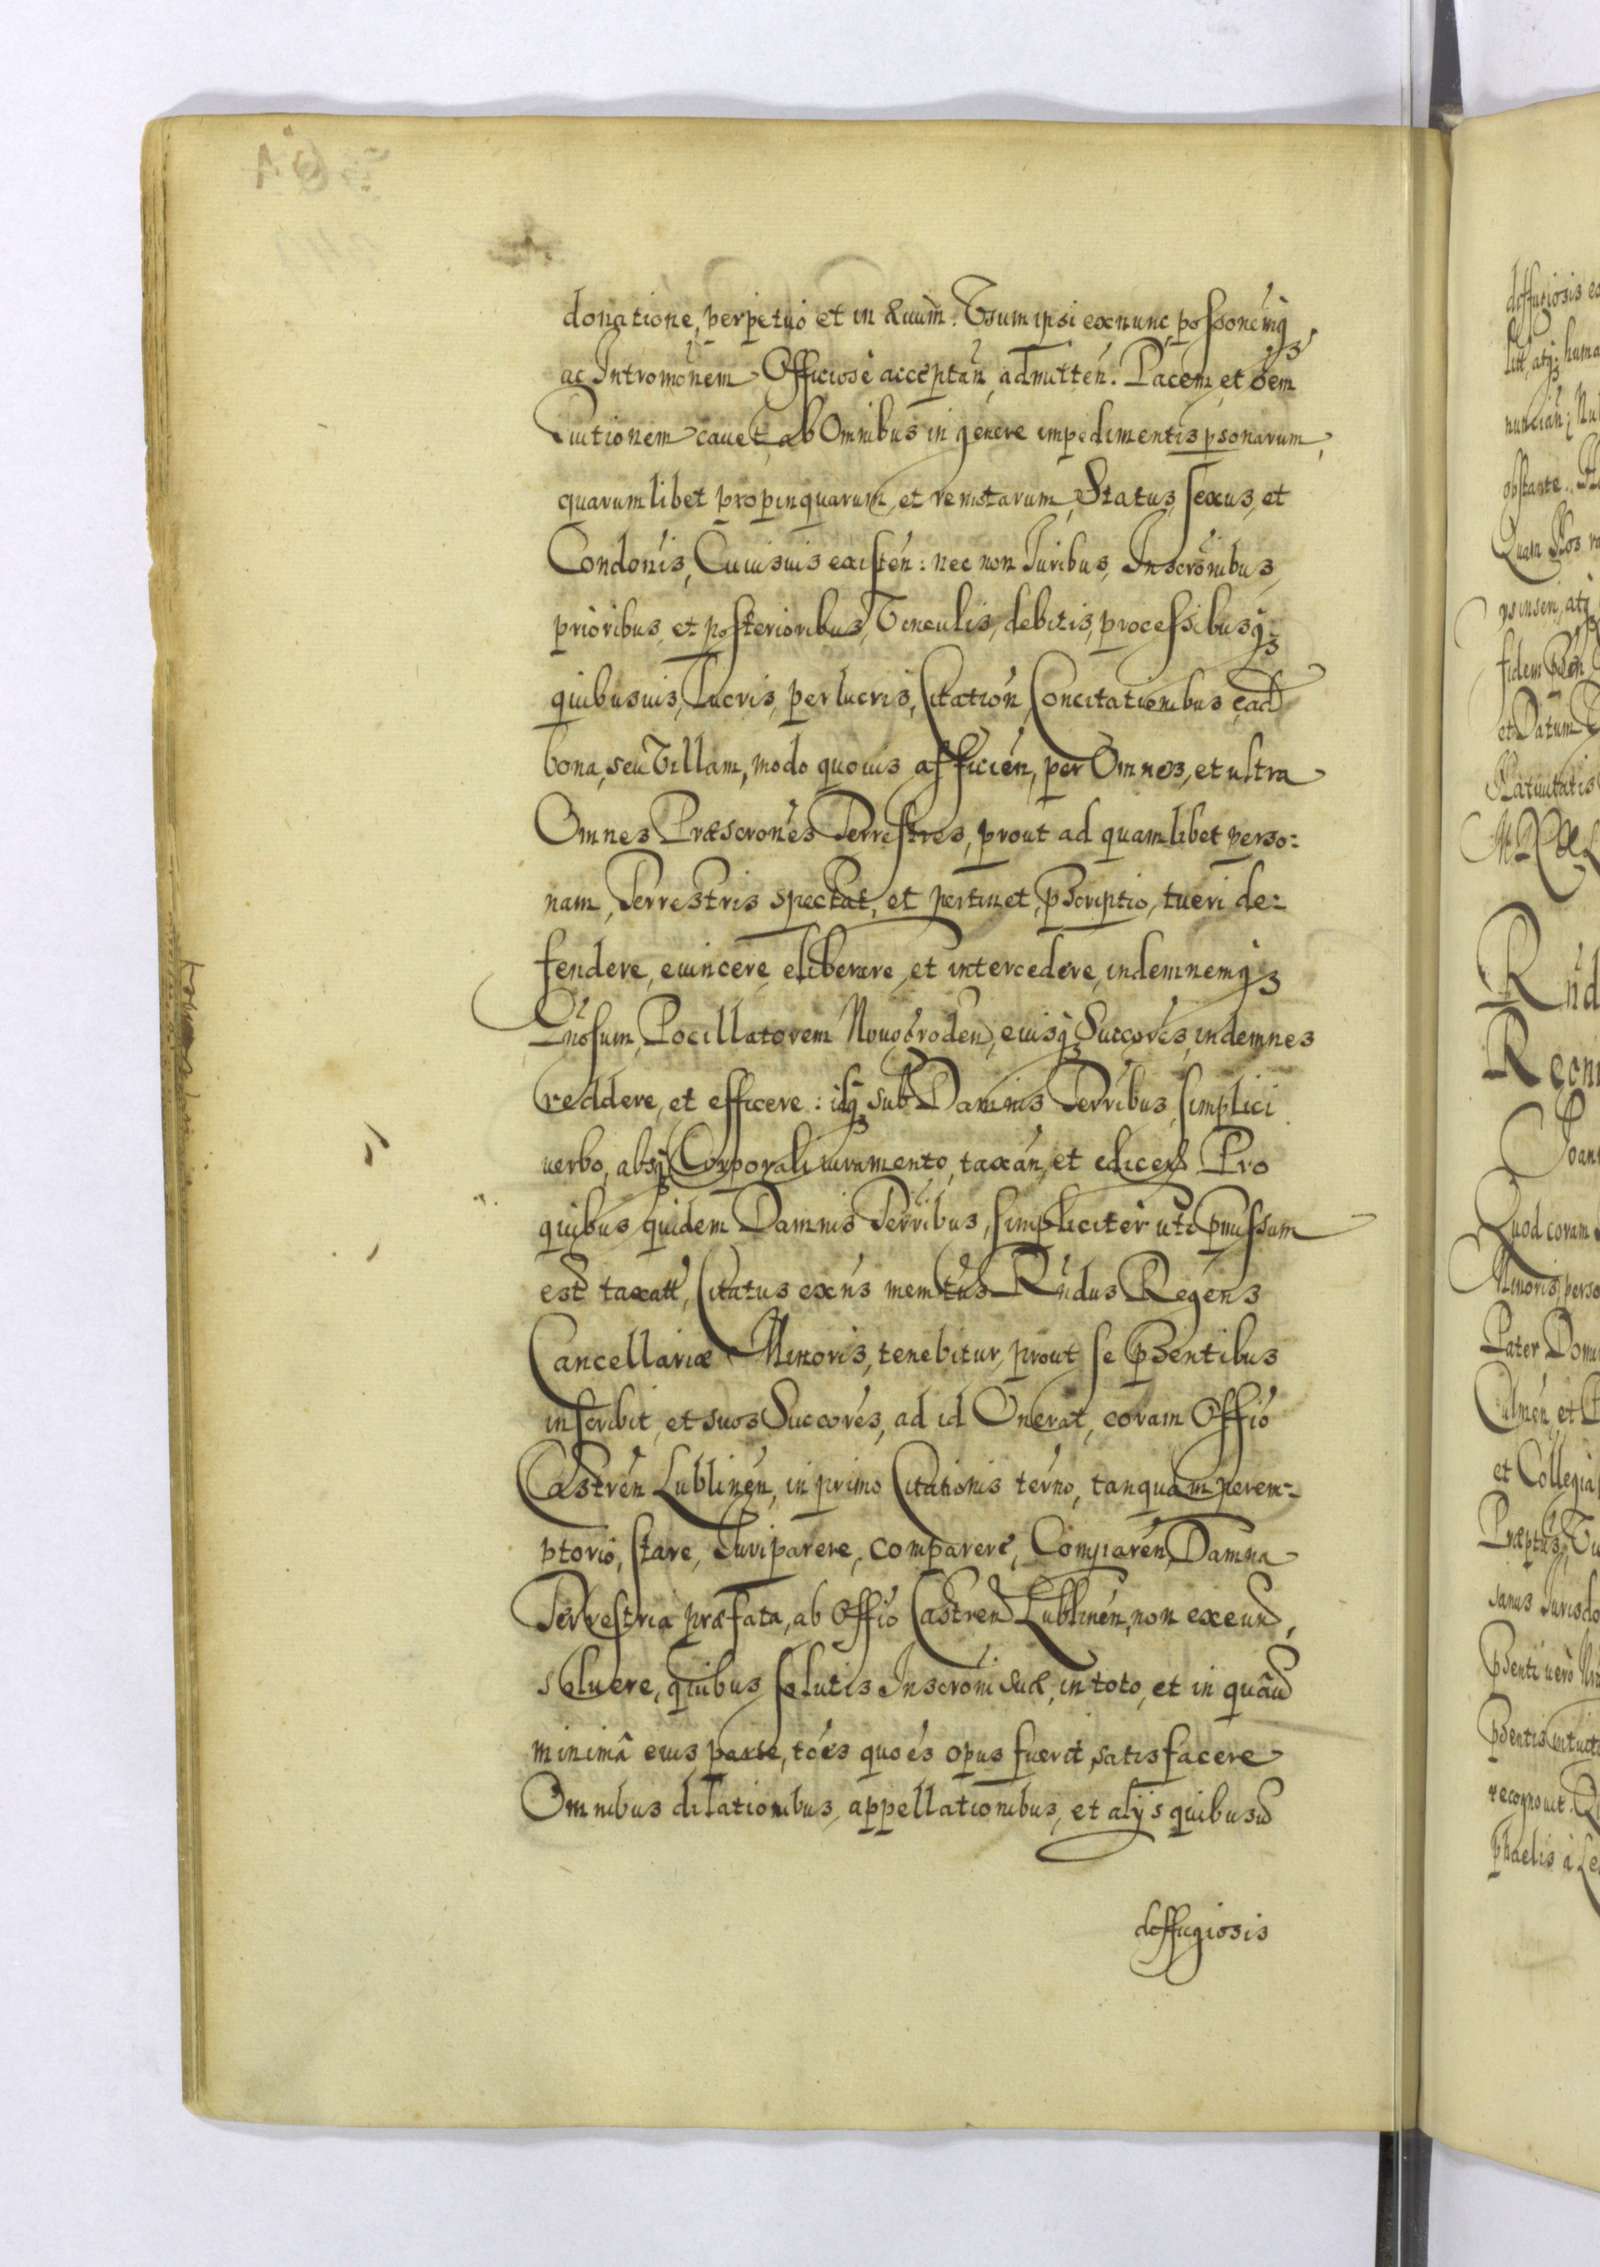 donatione, perpetuò et in æuum. Vsum ipsi exnunc, possonemq3
ac Intromonem Officiosè acceptan, admitten. Pacem, et oem
Euictionem cauet, ab Omnibus in genere impedimentis psonarum,
quarumlibet propinquarum, et remotarum, Status, sexus, et
Condonis, Cuiusuis existen: nec non Iuribus, Inscronibus,
prioribus, et posterioribus, Vinculis, debitis, processibusq3
quibusuis, Lucris, perlucris, Citation, Concitationibus, ad
bona, seu Villam, modo quouis afficien, per Omnes, et ultra
Omnes Præscrones Terrestres, prout ad quamlibet perso:
nam, Terrestris spectat, et pertinet, pscriptio, tueri de:
fendere, euincere, eliberare, et intercedere, indemnemq3
Gnosum, Pocillatorem Nouogroden, eiusq3 Succores, indemnes
reddere, et efficere: idq3 sub Damnis Terribus, simplici
verbo, absq3 Corporali iuramento, taxan, et edicen. Pro
quibus quidem Damnis Terribus, simpliciter uti pmissum
est taxatt, Citatus exns memtus Rndus Regens
Cancellariæ Minoris, tenebitur, prout se psentibus
inscribit, et suos Succores, ad id Onerat, coram Offio
Castren Lublinen, in primo Citationis terno, tanquam perem:
ptorio, stare, Iuri parere, comparere, Comparen, Damna
Terrestria præfata, ab Offio Castren Lublinen, non exeund,
soluere, quibus solutis Inscroni suæ, in toto, et in quauis
minimâ eius parte, toes quoes opus fuerit, satisfacere
Omnibus dilationibus, appellationibus, et alijs quibusuis
deffugiosis
deffugiosis
nuncian
obstante.
Quam Nos
fidem
et Datum
Natiuitatis
Rnd
Quod coram
Minoris, perso
Pater Domi
Culmen, et
et Collegia
recognouit.
phaelis à